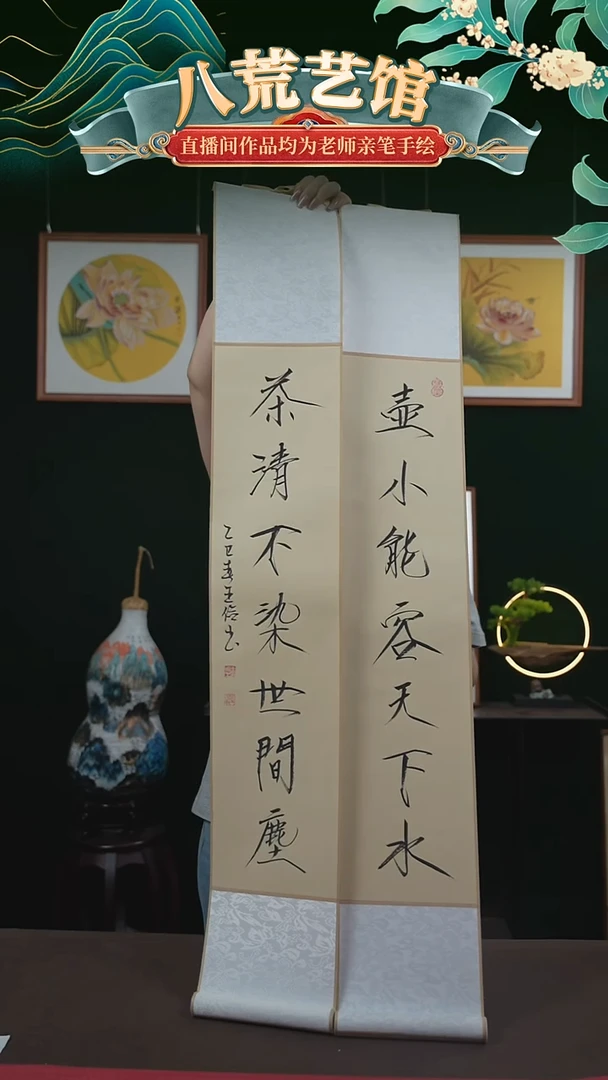 八荒艺馆
直播间作品均为老师亲笔手绘
壶小能容天下水
茶清不染世間塵
乙巳春王倍书